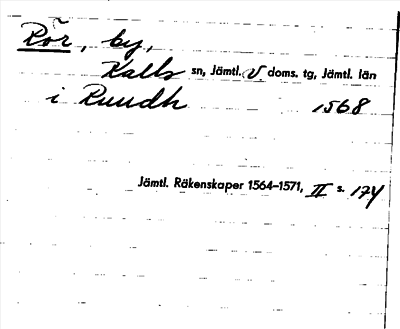 Rör, by,
Kalls sn, Jämtl. V doms. tg, Jämtl. län
i Ruudh 1568
Jämtl. Räkenskaper 1564–1571, II s. 174